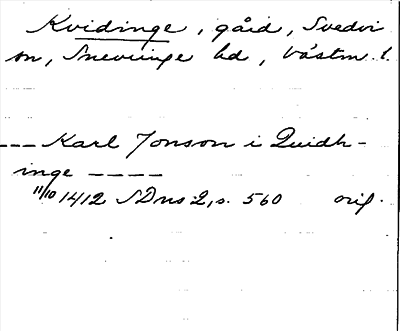 Kvidinge, gård, Svedvi
sn, Snevringe hd, Västm. l.
--- Karl Jonson i Quidh-
inge ----
11/10 1412 SD ns 2, s. 560 orig.